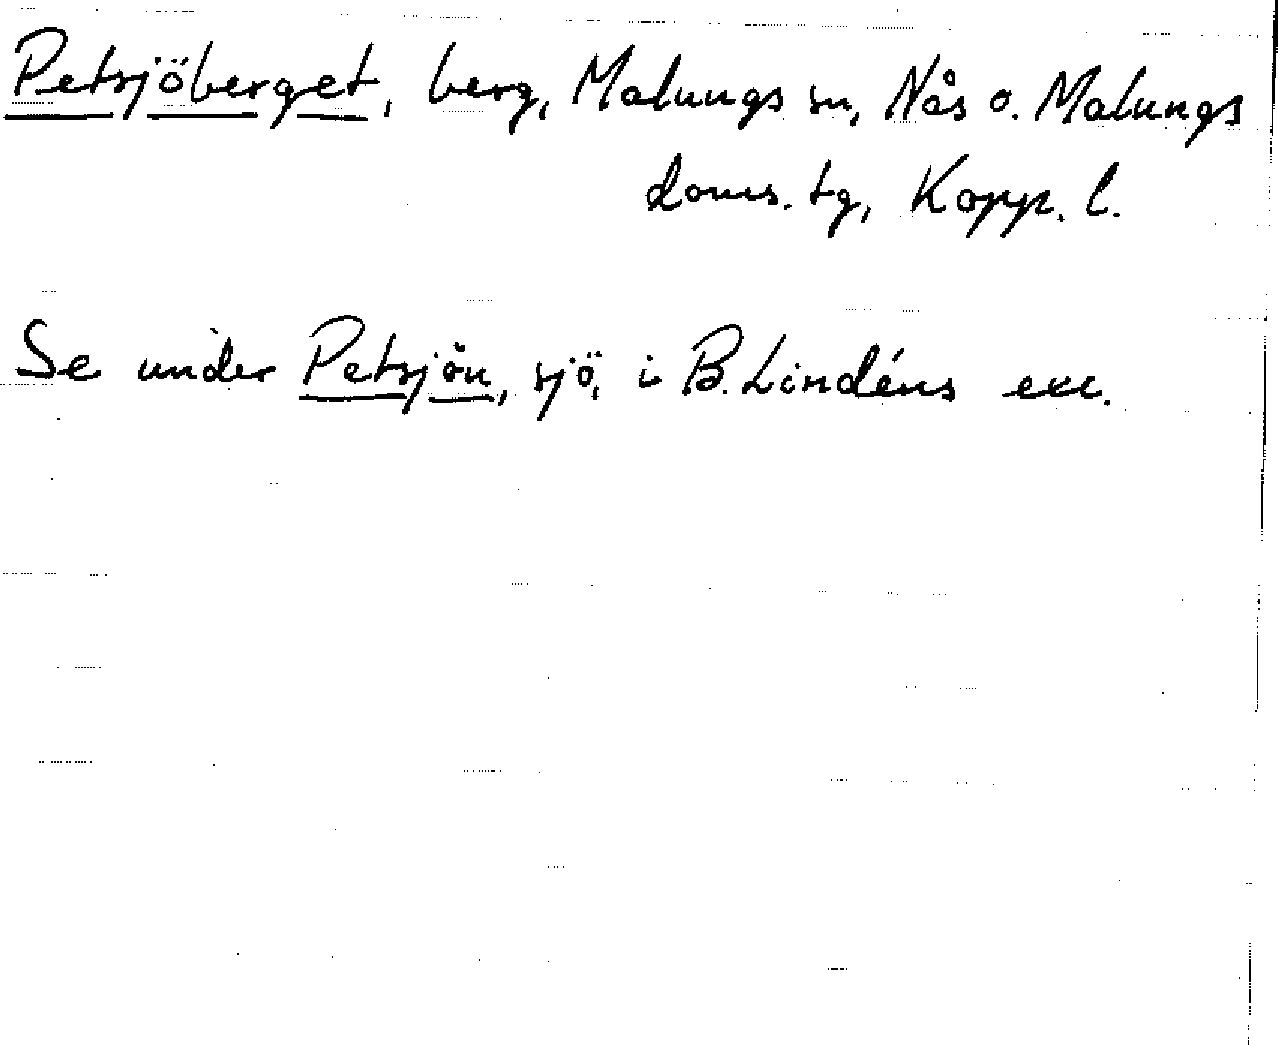 Petsjöberget, berg, Malungs sn, Nås o. Malungs
doms. tg, Kopp. l.
Se under Petsjön, sjö, i B. Lindéns exc.